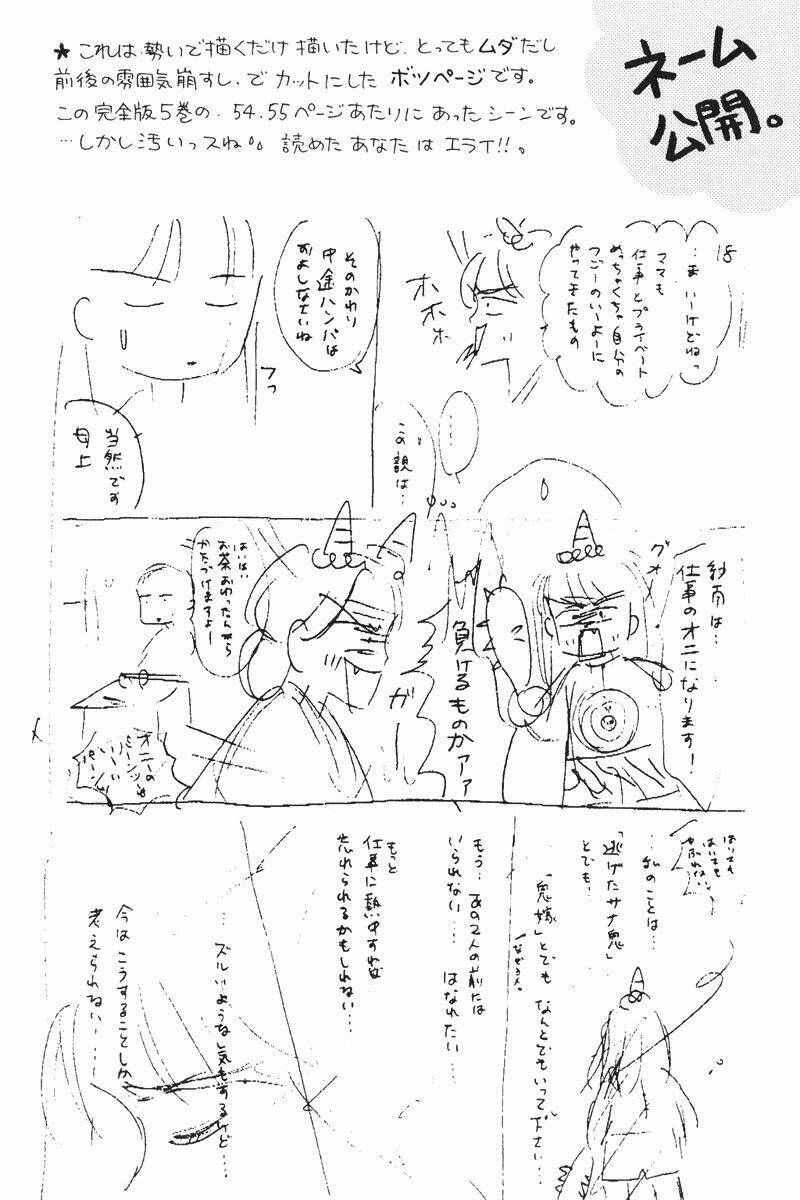 ネーム
公開。
★これは勢いで描くだけ描いたけど、とってもムダだし
前後の雰囲気崩すし、でカットにしたボツページです。
この完全版5巻の、54.55ページあたりにあったシーンです。
…しかし汚いっスね。読めたあなたはエライ!!。
18
…ま いーけどねっ
ママも
仕事とプライベート
めっちゃくちゃ自分の
つごーのいーよーに
やってきたもの
ホホホ
そのかわり
中途ハンパは
およしなさいね
フっ
当然です
母上
……
この親は…
紗南は…
仕事のオニになります!
グオ
負けるものかァァ
ガ
はいはい
お茶おわったんなら
かたづけますよー
オニーの
パーンツは
いーい
パーンツ
はいても
はいても
やぶれない
…私のことは…
「逃げたサナ鬼」
とでも!
「鬼嫁」とでも なんとでもいって下さい…
なぜヨメ。
もう…あの2人の前には
いられない… はなれたい…
もっと
仕事に熱中すれば
忘れられるかもしれない…
…ズルいような気もするけど…
今はこうすることしか
考えられない……